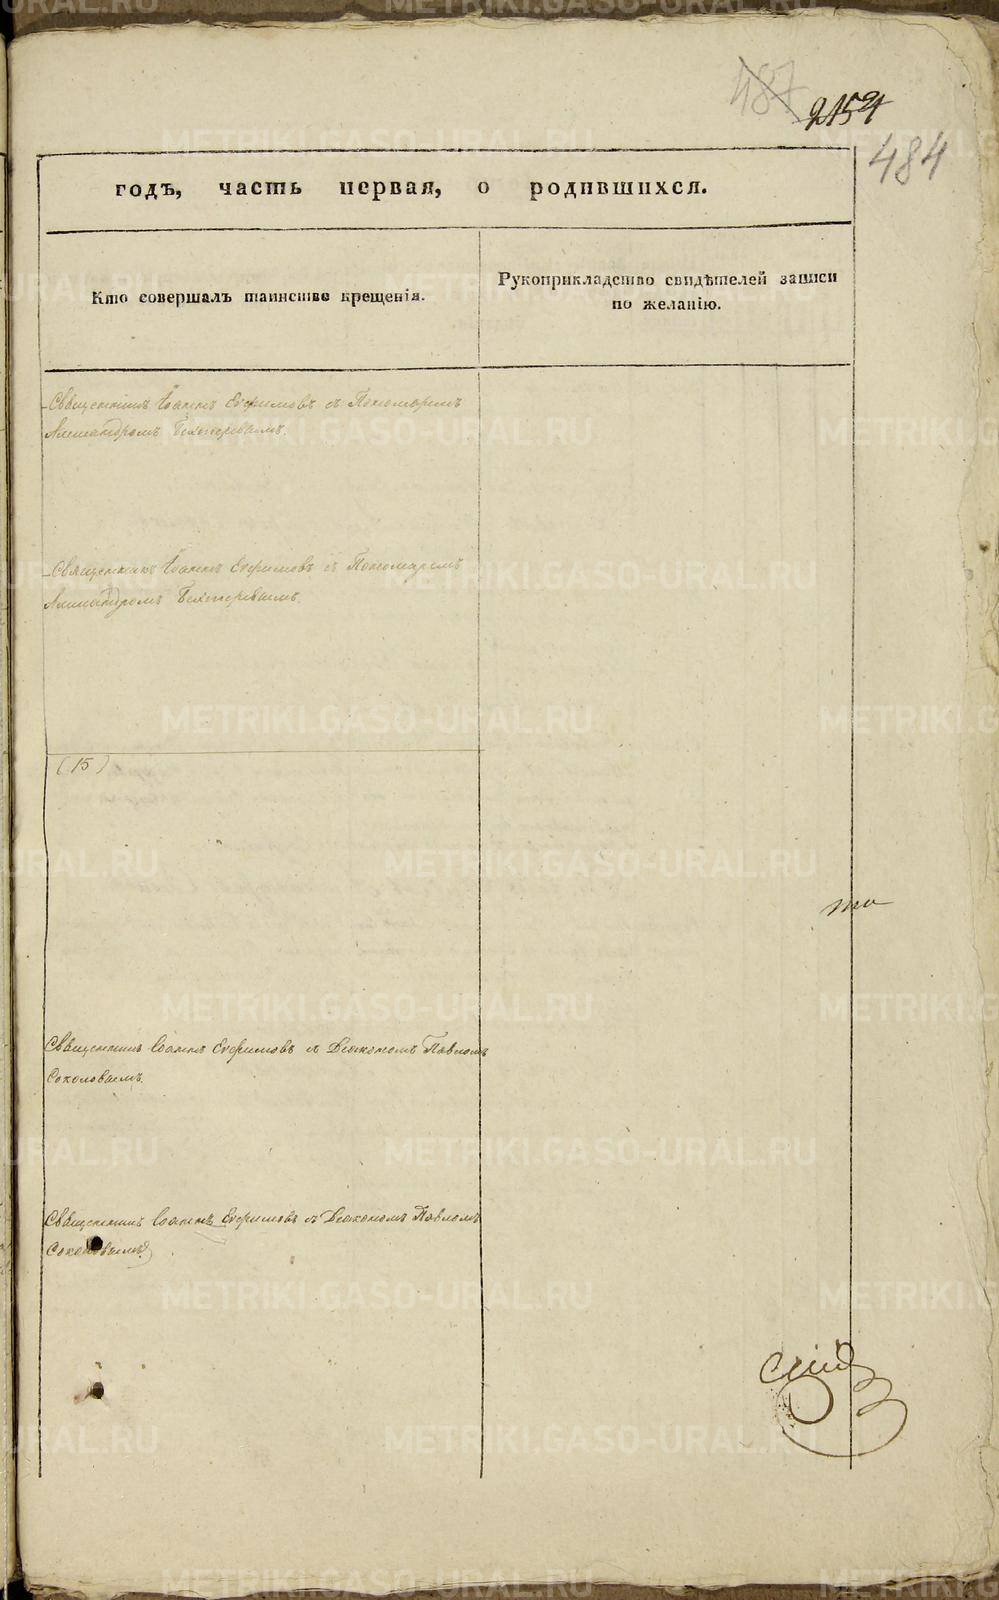 487
2154
484
годѣ, часть первая, о родившихся.
Кто совершалъ таинство крещенія.
Рукоприкладство свидѣтелей записи
по желанію.
Священникъ Іоаннъ Ефимовъ съ Пономаремъ
Александромъ Бехтеревымъ.
Священникъ Іоаннъ Ефимовъ съ Пономаремъ
Александромъ Бехтеревымъ.
(15)
та
Священникъ Іоаннъ Ефимовъ съ Діакономъ Павломъ
Соколовымъ.
Священникъ Іоаннъ Ефимовъ съ Діакономъ Павломъ
Соколовымъ
METRIKI.GASO-URAL.RU